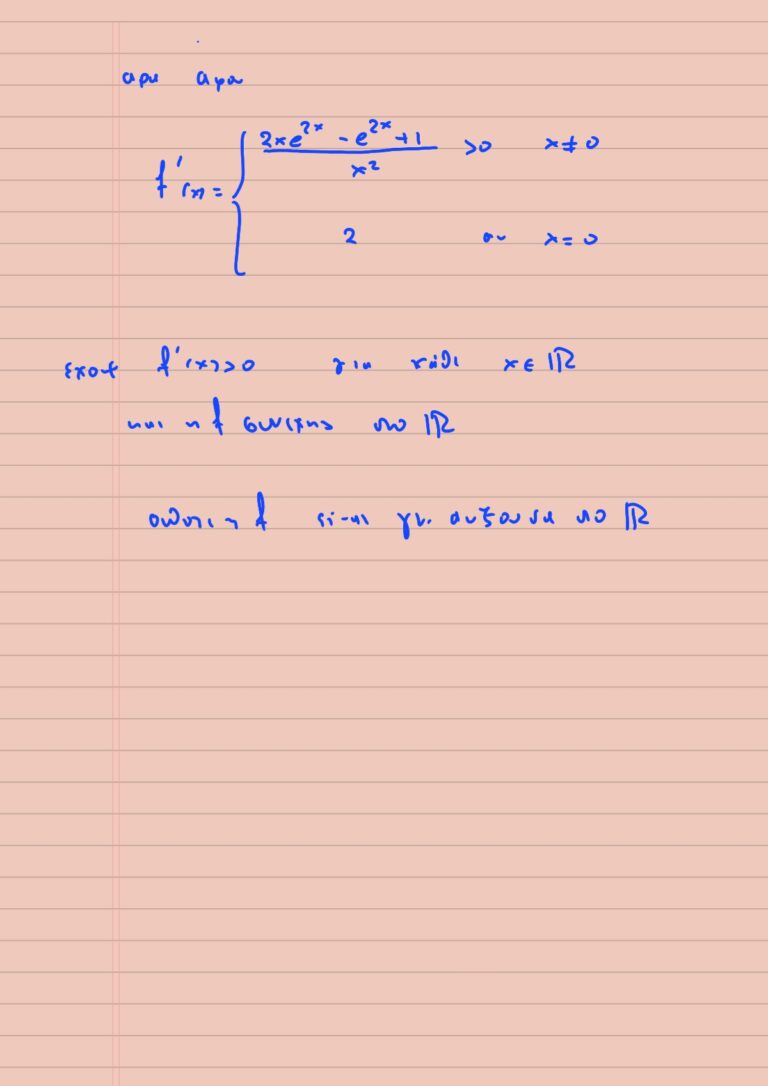 αρα αρα
f'(x) = { (2xe^{2x} - e^{2x} + 1) / x^2 >0 x ≠ 0
2 αν x = 0
εχουμε f'(x) > 0 για κάθε x ∈ ℝ
και η f συνεχης στο ℝ
οπότε η f είναι γν. αυξουσα στο ℝ